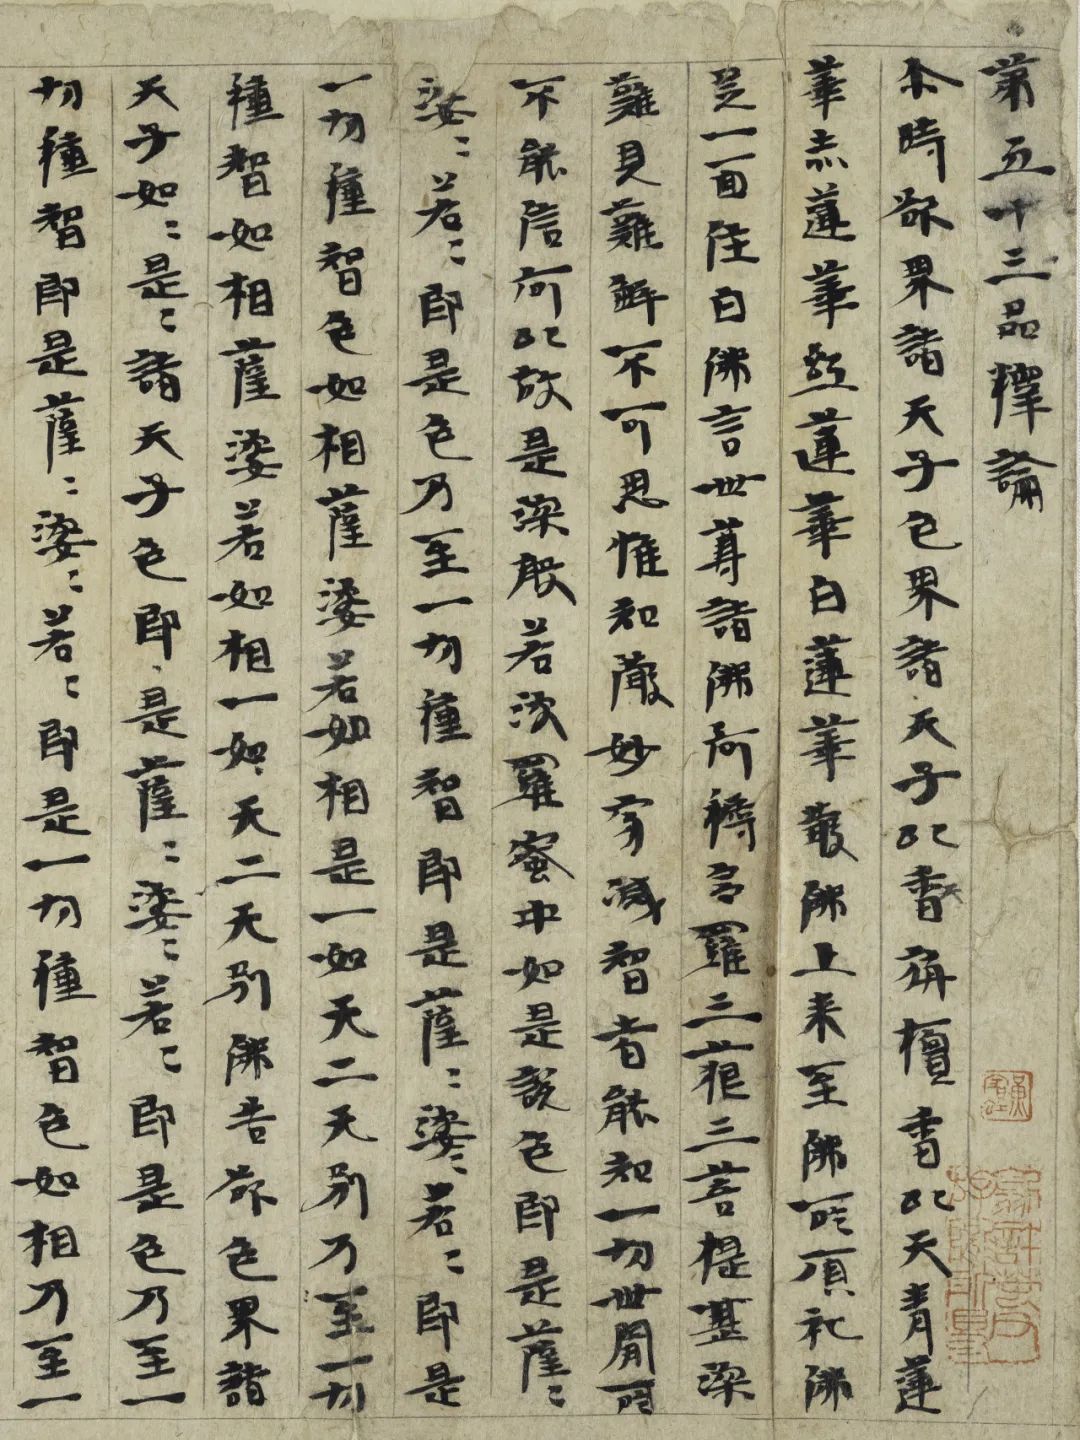 第五十三品釋論
尒時欲界諸天子色界諸天子以天香末栴檀香以天青蓮
華赤蓮華紅蓮華白蓮華散佛上来至佛所頂礼佛
足一面住白佛言世尊諸佛阿耨多羅三藐三菩提甚深
難見難解不可思惟知微妙寂滅智者能知一切世間所
不能信何以故是深般若波羅蜜中如是說色即是薩〻
婆〻若〻即是色乃至一切種智即是薩〻婆〻若〻即是
一切種智色如相薩婆若如相是一如无二无別乃至一切
種智如相薩婆若如相一如无二无別佛告欲色界諸
天子如〻是〻諸天子色即是薩〻婆〻若〻即是色乃至一
切種智即是薩〻婆〻若〻即是一切種智色如相乃至一